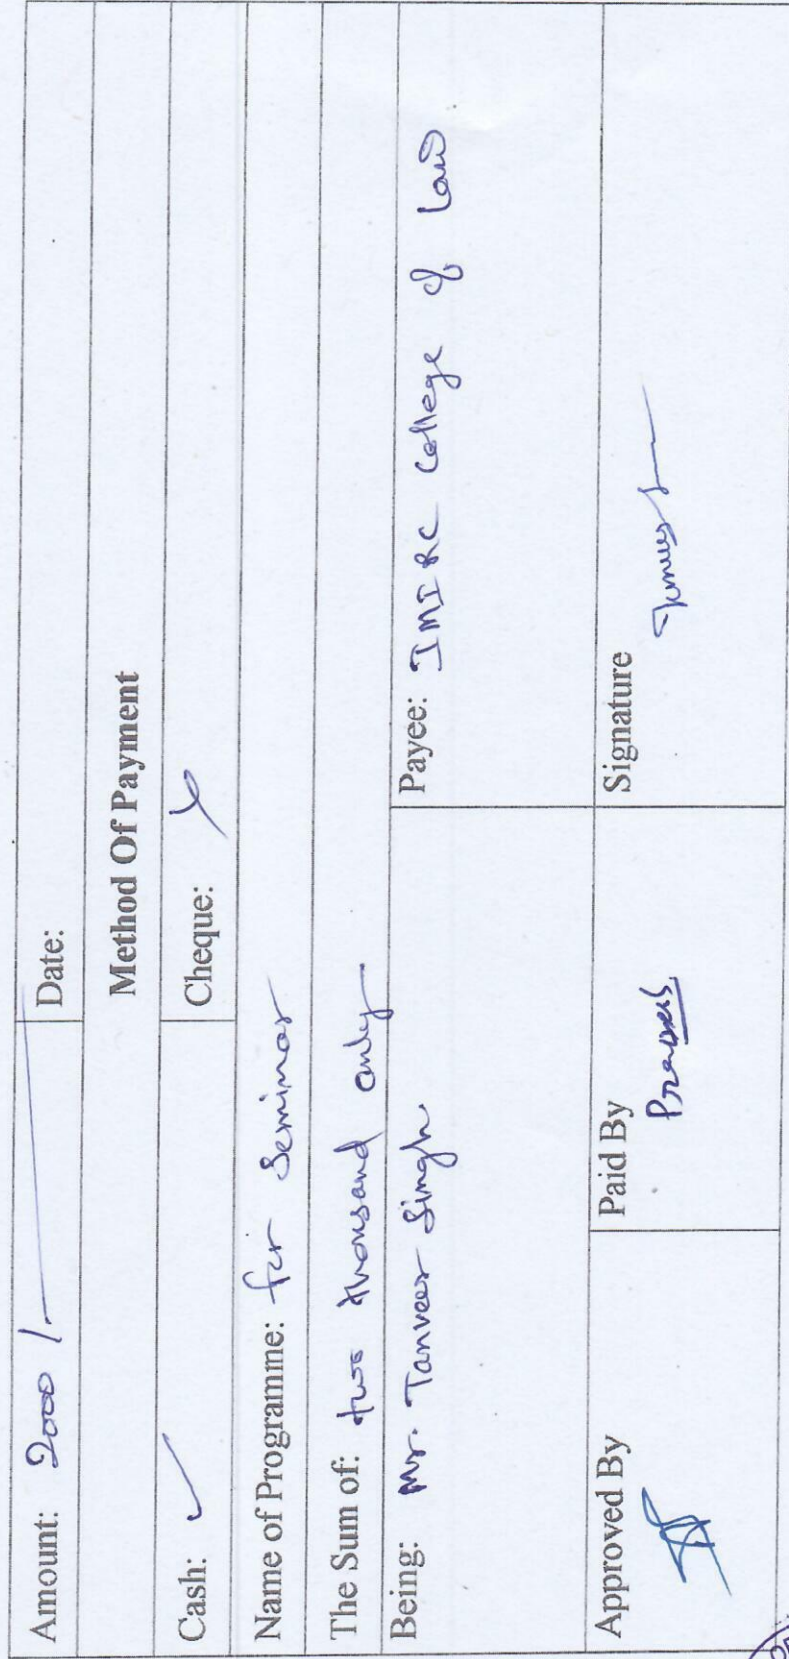 Amount: 2000/- Date:
Method Of Payment
Cash: ✓ Cheque: x
Name of Programme: for Seminar
The Sum of: two thousand only
Being: Mr. Tanveer Singh Payee: IMIRC College of Law
Approved By Paid By Signature